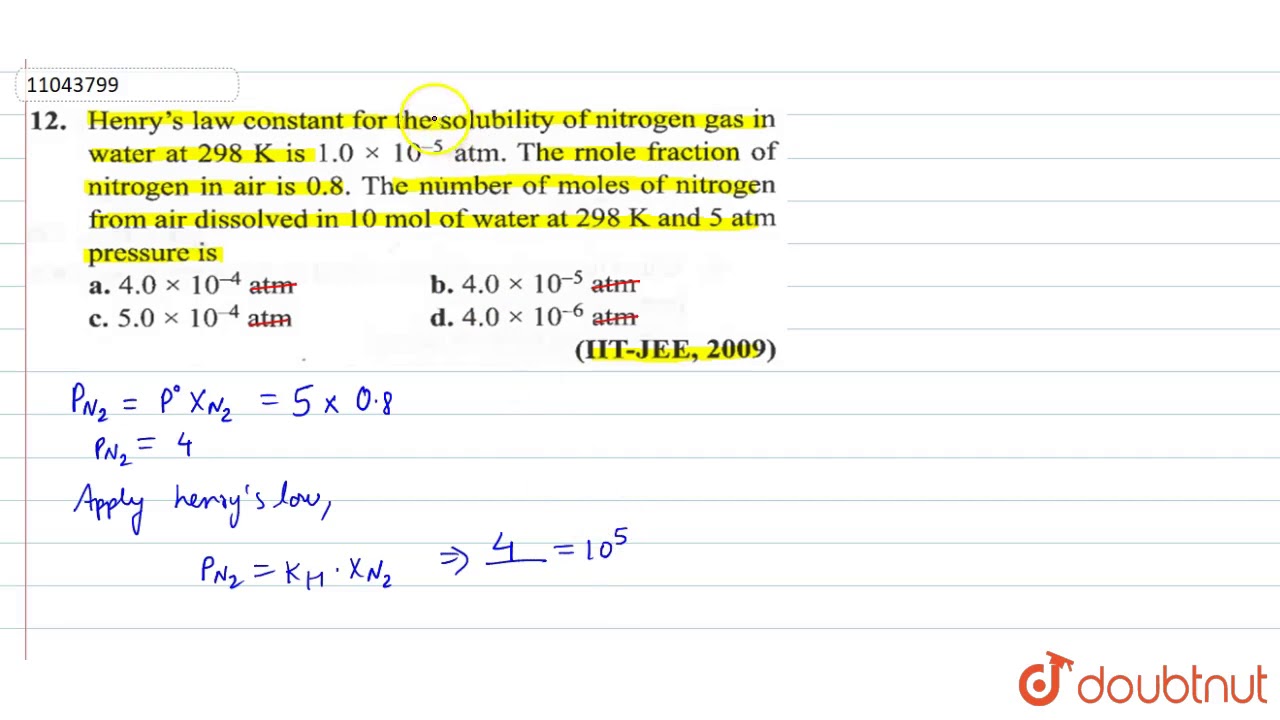 11043799
12. Henry's law constant for the solubility of nitrogen gas in
water at 298 K is 1.0 × 10⁻⁵ atm. The rnole fraction of
nitrogen in air is 0.8. The number of moles of nitrogen
from air dissolved in 10 mol of water at 298 K and 5 atm
pressure is
a. 4.0 × 10⁻⁴ atm b. 4.0 × 10⁻⁵ atm
c. 5.0 × 10⁻⁴ atm d. 4.0 × 10⁻⁶ atm
(IIT-JEE, 2009)
P_N₂ = P° X_N₂ = 5 × 0.8
P_N₂ = 4
Apply henry's low,
P_N₂ = K_H · X_N₂ ⇒ 4 = 10⁵
doubtnut